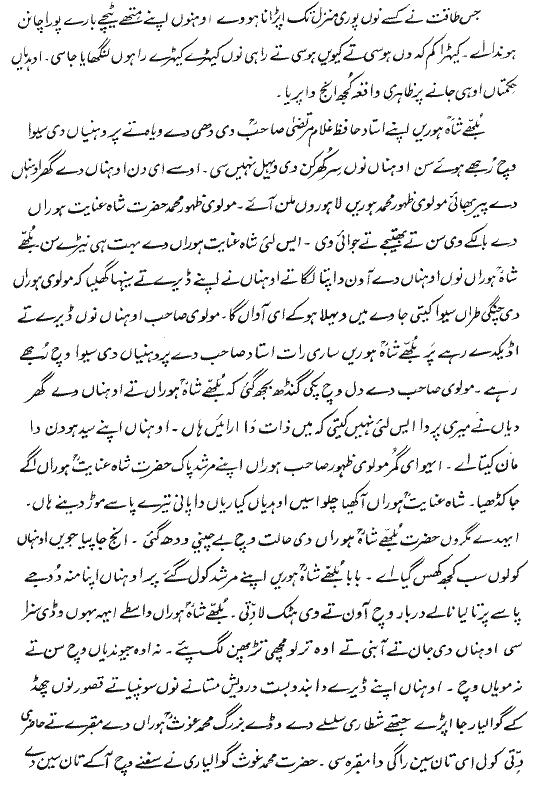 جس طاقت نے کسے نوں پوری منزل تک اپڑانا ہووے اوہنوں اپنے متھے ٹیچے بارے پورا چانن
ہوندا اے۔ کیہڑا کم کد وں ہوسی تے کیویں ہوسی تے راہی نوں کیہڑے کیہڑے راہوں لنگھایا جاسی۔ اوہدیاں
حکمتاں اوہی جانے پر ظاہری واقعہ کُجھ انج واپریا۔
بُلھے شاہؒ ہوریں اپنے استاد حافظ غلام مرتضیٰ صاحبؒ دی دھی دے ویاہ تے پروہنیاں دی سیوا
وچ رُجھے ہوئے سن اوہناں نوں سِر کھرکن دی ویہل نہیں سی۔ اوسے ای دن اوہناں دے گھر اوہناں
دے پیر بھائی مولوی ظہور محمد ہوریں لاہوروں ملن آئے۔ مولوی ظہور محمد حضرت شاہ عنایت ہوراں
دے بالکے وی سن تے بھتیجے تے جوائی وی۔ ایس لئی شاہ عنایت ہوراں دے بہت ہی نیڑے سن بُلھے
شاہؒ ہوراں نوں اوہناں دے آون دا پتا لگا تے اوہناں نے اپنے ڈیرے تے سنیہا گھلیا کہ مولوی ہوراں
دی چنگی طراں سیوا کیتی جاوے میں ویہلا ہو کے ای آواں گا۔ مولوی صاحب اوہناں نوں ڈیرے تے
اڈیکدے رہے پر بُلھے شاہؒ ہوریں ساری رات استاد صاحب دے پروہنیاں دی سیوا وچ رُجھے
رہے۔ مولوی صاحب دے دل وچ پکی گنڈھ بجھ گئی کہ بُلھے شاہؒ ہوراں تے اوہناں دے گھر
دیاں نے میری پروا ایس لئی نہیں کیتی کہ میں ذات دا ارائیں ہاں۔ اوہناں اپنے سید ہون دا
مان کیتا اے۔ ایہو ای گمر مولوی ظہور صاحب ہوراں اپنے مرشد پاک حضرت شاہ عنایتؒ ہوراں اگے
جا کڈھیا۔ شاہ عنایتؒ ہوراں آکھیا چلو اسیں اوہدیاں کیاریاں دا پانی تیرے پاسے موڑ دینے ہاں۔
ایہدے مگروں حضرت بُلھے شاہؒ ہوراں دی حالت وچ بے چینی ودھ گئی۔ انج جاپیا جویں اوہناں
کولوں سب کجھ کھس گیا اے۔ بابا بُلھے شاہؒ ہوریں اپنے مرشد کول گئے پر اوہناں اپنا منہ دُوجے
پاسے پرتا لیا نالے دربار وچ آون تے وی ہٹک لا دتی۔ بُلھے شاہؒ ہوراں واسطے ایہہ بہوں وڈی سزا
سی اوہناں دی جان تے آ بنی تے اوہ ترلو مچھی تڑپھن لگ پئے۔ نہ اوہ جیوندیاں وچ سن تے
نہ مویاں وچ۔ اوہناں اپنے ڈیرے دا بندوبست درویش مستانے نوں سونپیا تے قصور نوں چھڈ
کے گوالیار جا اپڑے جتھے شطاری سلسلے دے وڈے بزرگ محمد غوثؒ ہوراں دے مقبرے تے حاضری
دِتی کول ای تان سین راگی دا مقبرہ سی۔ حضرت محمد غوث گوالیاری نے سفنے وچ آ کے تان سین دے